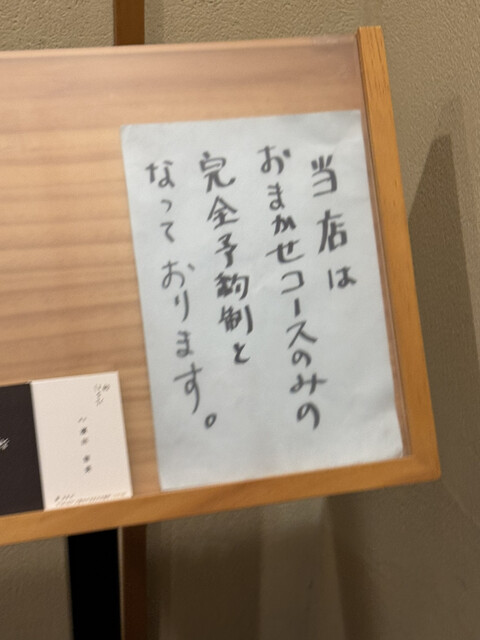 当店は
おまかせコースのみの
完全予約制と
なっております。